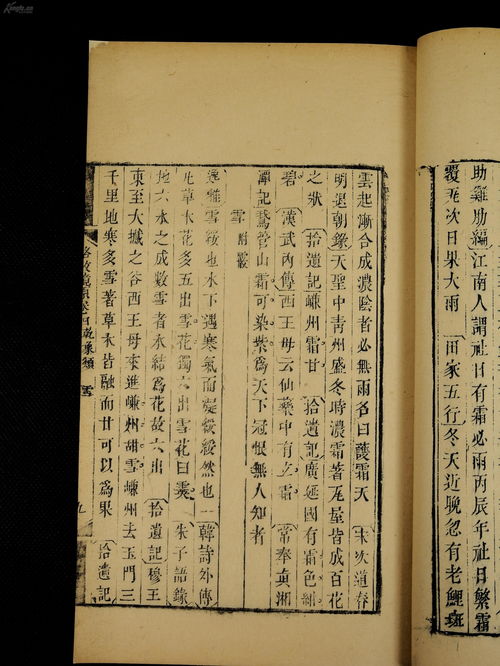 助雞助編江南人謂社日有霜必雨丙辰年社日繁霜
覆瓦次日果大雨 田家五行冬天近晚忽有老鯉斑
雲起漸合成濃陰者必無雨名曰護霜天 宋次道春
明退朝錄天聖中青州盛冬時濃霜著瓦屋皆成百花
之狀 拾遺記嵰州霜甘 拾遺記廣延國有霜色紺
碧 漢武內傳西王母云仙藥中有玄霜 常奉真湘
潭記鵞管山霜可染紫爲天下冠恨無人知者
雪 附霰
逸雅雪綏也水下遇寒氣而凝綏綏然也 韓詩外傳
凡草木花多五出雪花獨六出雪花曰霙 朱子語錄
地六水之成數雪者水結爲花故六出 拾遺記穆王
東至大之谷西王母來進嵰州甜雪嵰州去玉門三
千里地寒多雪著草木皆融而甘可以爲果 拾遺記
格致鏡原卷四 乾象類 雪 九